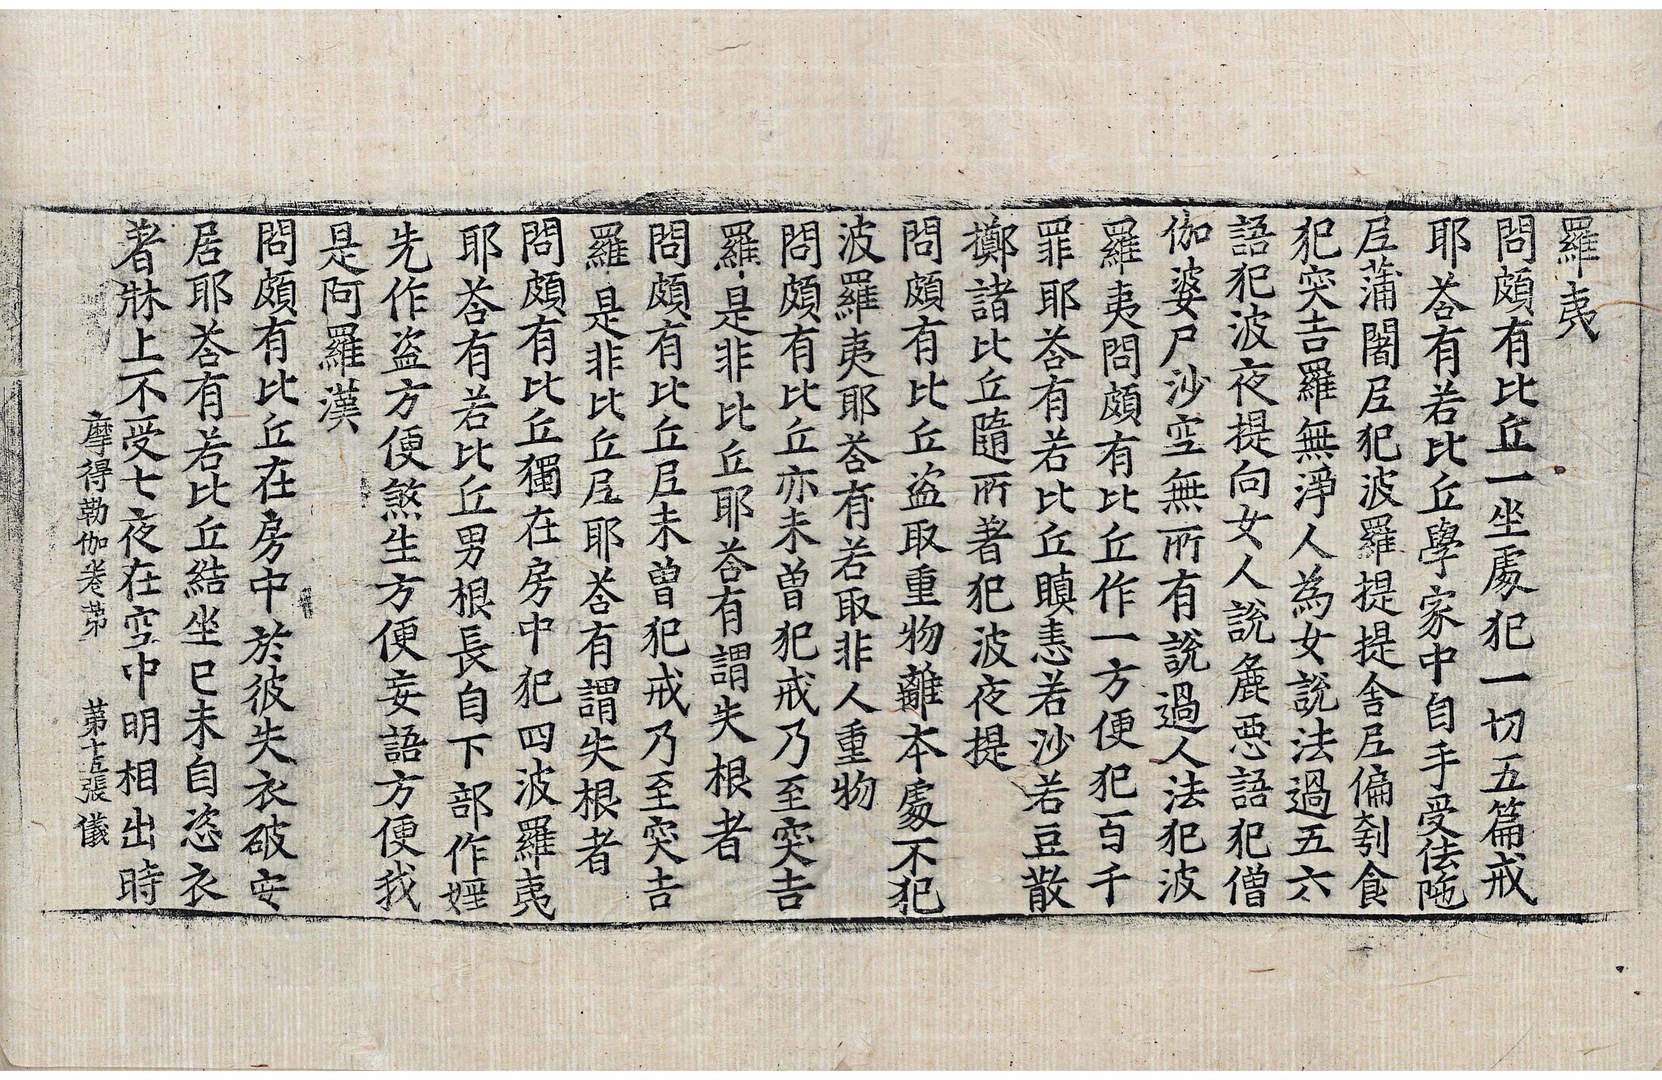 羅夷
問頗有比丘一坐處犯一切五篇戒
耶荅有若比丘學家中自手受佉陁
尼蒲闍尼犯波羅提提舍尼偏刳食
犯突吉羅無淨人為女說法過五六
語犯波夜提向女人說麁惡語犯僧
伽婆尸沙空無所有說過人法犯波
羅夷問頗有比丘作一方便犯百千
罪耶荅有若比丘瞋恚若沙若豆散
擲諸比丘隨所著犯波夜提
問頗有比丘盜取重物離本處不犯
波羅夷耶荅有若取非人重物
問頗有比丘亦未曾犯戒乃至突吉
羅是非比丘耶荅有謂失根者
問頗有比丘尼未曾犯戒乃至突吉
羅是非比丘尼耶荅有謂失根者
問頗有比丘獨在房中犯四波羅夷
耶荅有若比丘男根長自下部作婬
先作盜方便煞生方便妄語方便我
是阿羅漢
問頗有比丘在房中於彼失衣破安
居耶荅有若比丘結坐已未自恣衣
著牀上不受七夜在空中明相出時
摩得勒伽卷第 第十五張儀